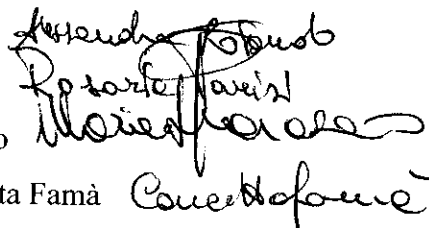 Alessandra Rotondo
Rosaria Parisi
o Maria
ta Famà Concetta Famà